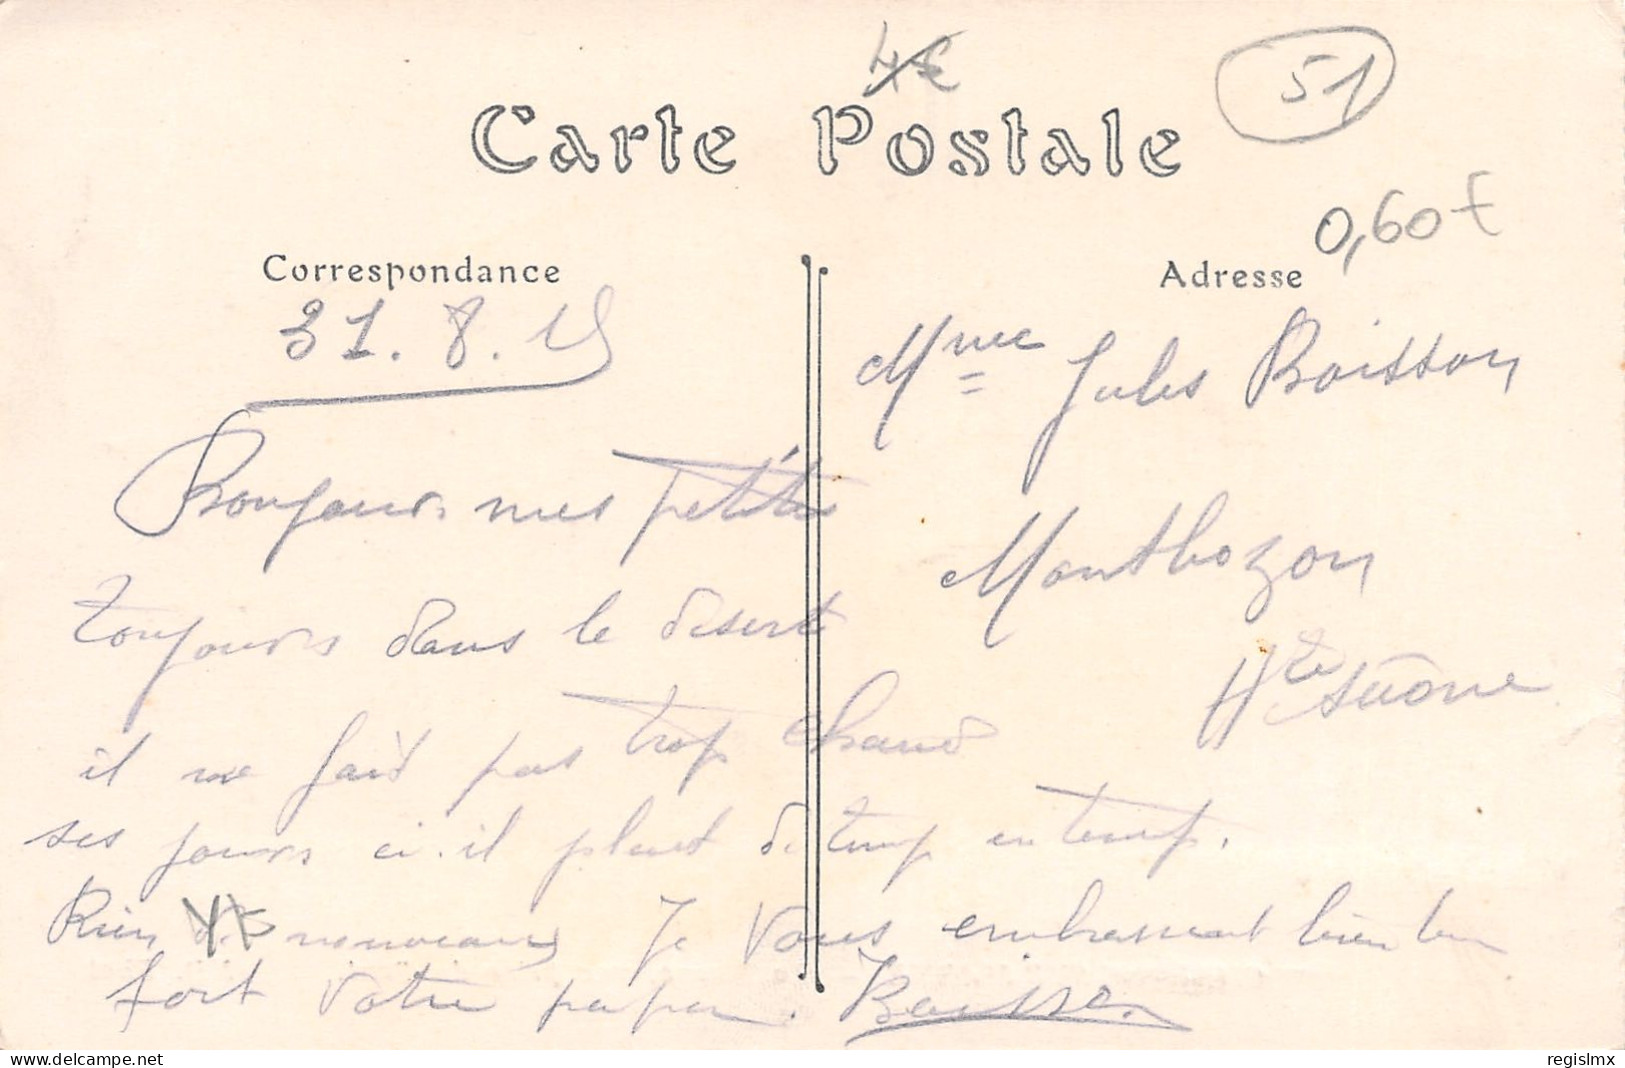 4€
51
Carte Postale
0,60€
Correspondance
Adresse
31.8.15
Mme Jules Boisson
Monthozon
Hte Saône
Bonjour mes petites
toujours dans le desert
il ne fait pas trop chaud
ses jours ci. il pleut de temp en temp.
Rien de nouveau Je vous embrassent bien bien
fort votre papa. Boisson
www.delcampe.net
regislmx